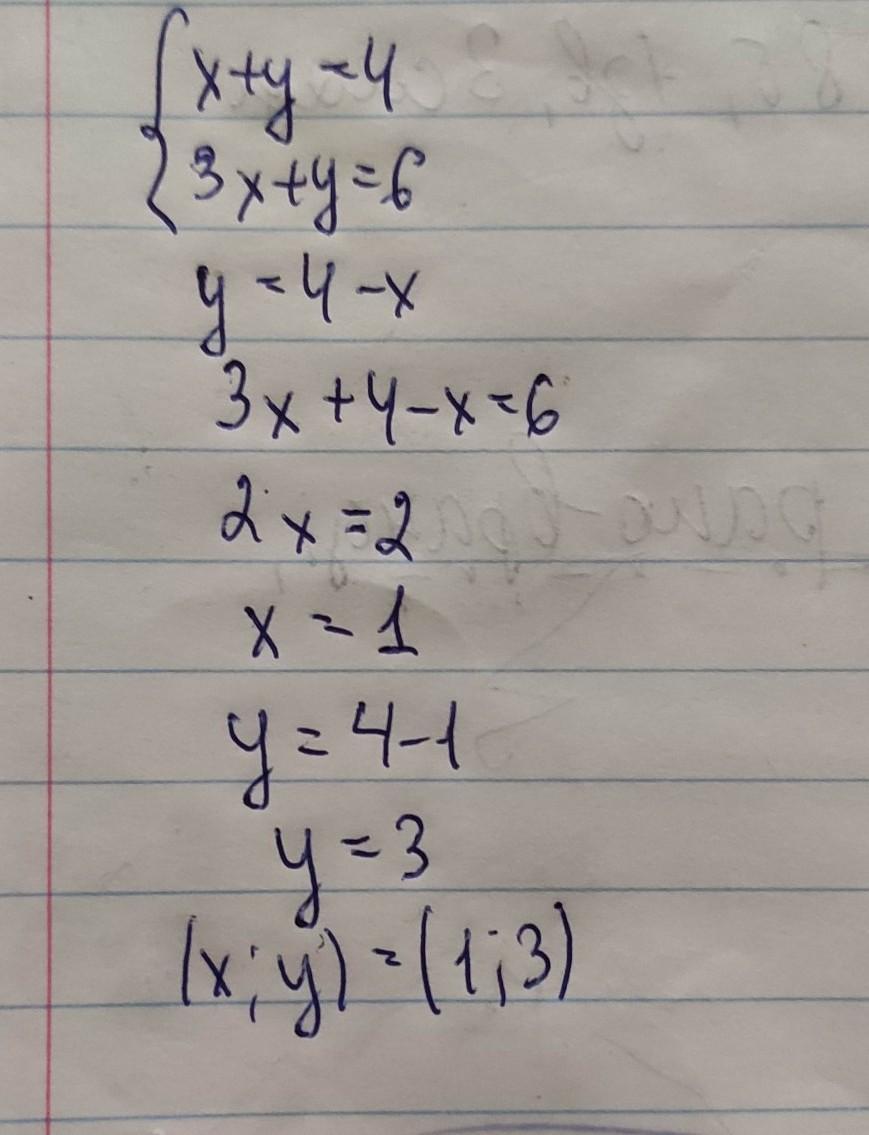 x+y=4
3x+y=6
y=4-x
3x+4-x=6
2x=2
x=1
y=4-1
y=3
(x;y)=(1;3)